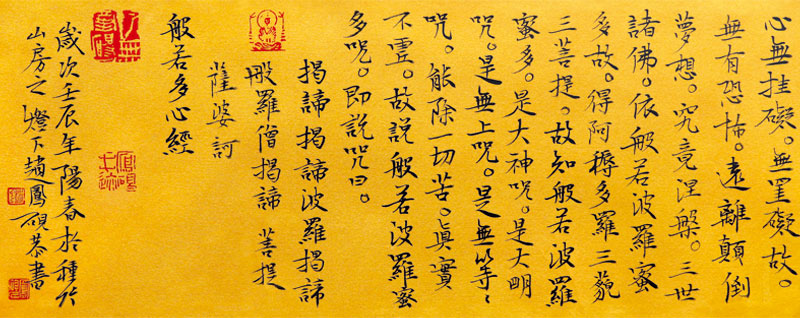 心無挂礙。無罣礙故。
無有恐怖。遠離顛倒
夢想。究竟涅槃。三世
諸佛。依般若波羅蜜
多故。得阿耨多羅三藐
三菩提。故知般若波羅
蜜多。是大神咒。是大明
咒。是無上咒。是無等〻
咒。能除一切苦。真實
不虛。故說般若波羅蜜
多咒。即說咒曰。
揭諦揭諦波羅揭諦
般羅僧揭諦 菩提
薩婆訶
般若多心經
歲次壬辰年陽春於種竹
山房之燈下趙鳳硯恭書